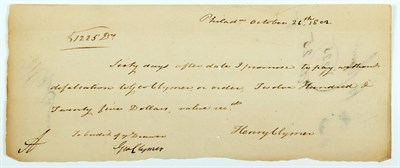 Philad.ᵃ October 26.th 1802
$1225 Drs
Sixty days after date I promise to pay without
defalcation to Geo Clymer or order, Twelve Hundred &
Twenty five Dollars, value recd.
Henry Clymer
To Credit of ye Drawer
Geo Clymer